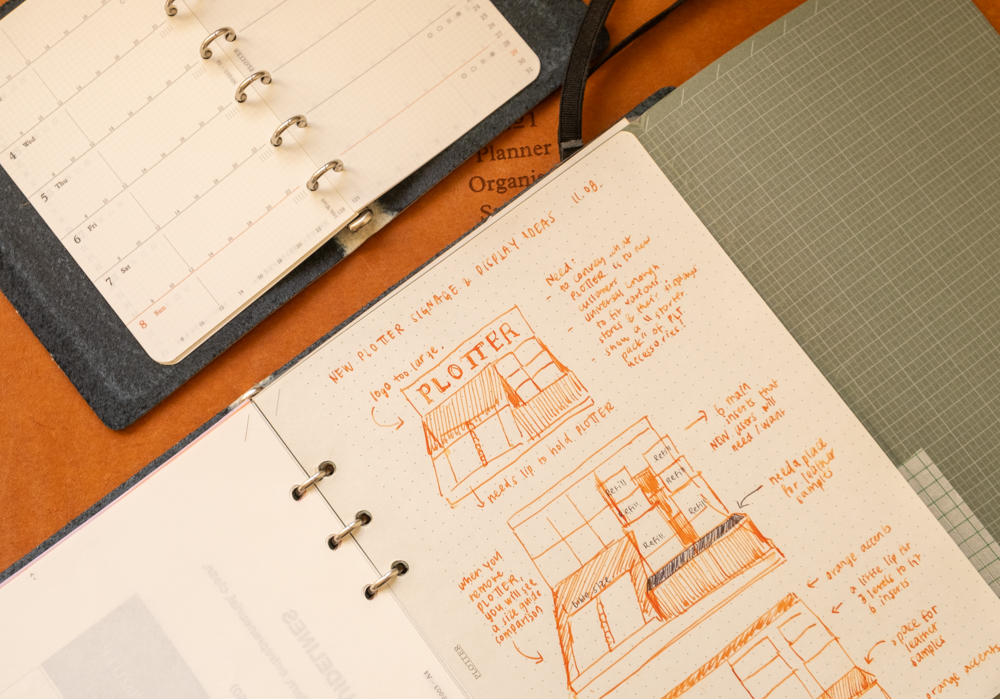 4 Wed
5 Thu
6 Fri
7 Sat
8 Sun
21
Planner
Organi
NEW PLOTTER SIGNAGE & DISPLAY IDEAS 11.08.
logo too large.
PLOTTER
Need:
- to convey what
PLOTTER is to new
customers
- universal enough
to fit various
stores & their displays
- show a "starter
pack" of PLT
accessories!
needs lip to hold PLOTTER
6 main
inserts that
NEW users will
need/want
Refill
Refill
Refill
Refill
Refill
Refill
need a place
for leather
samples
when you
remove
PLOTTER,
you will see
a size guide
comparison
bible size
orange accents
a little lip for
3 levels to fit
6 inserts
space for
leather
samples
orange accents
PLOTTER
IDELINES